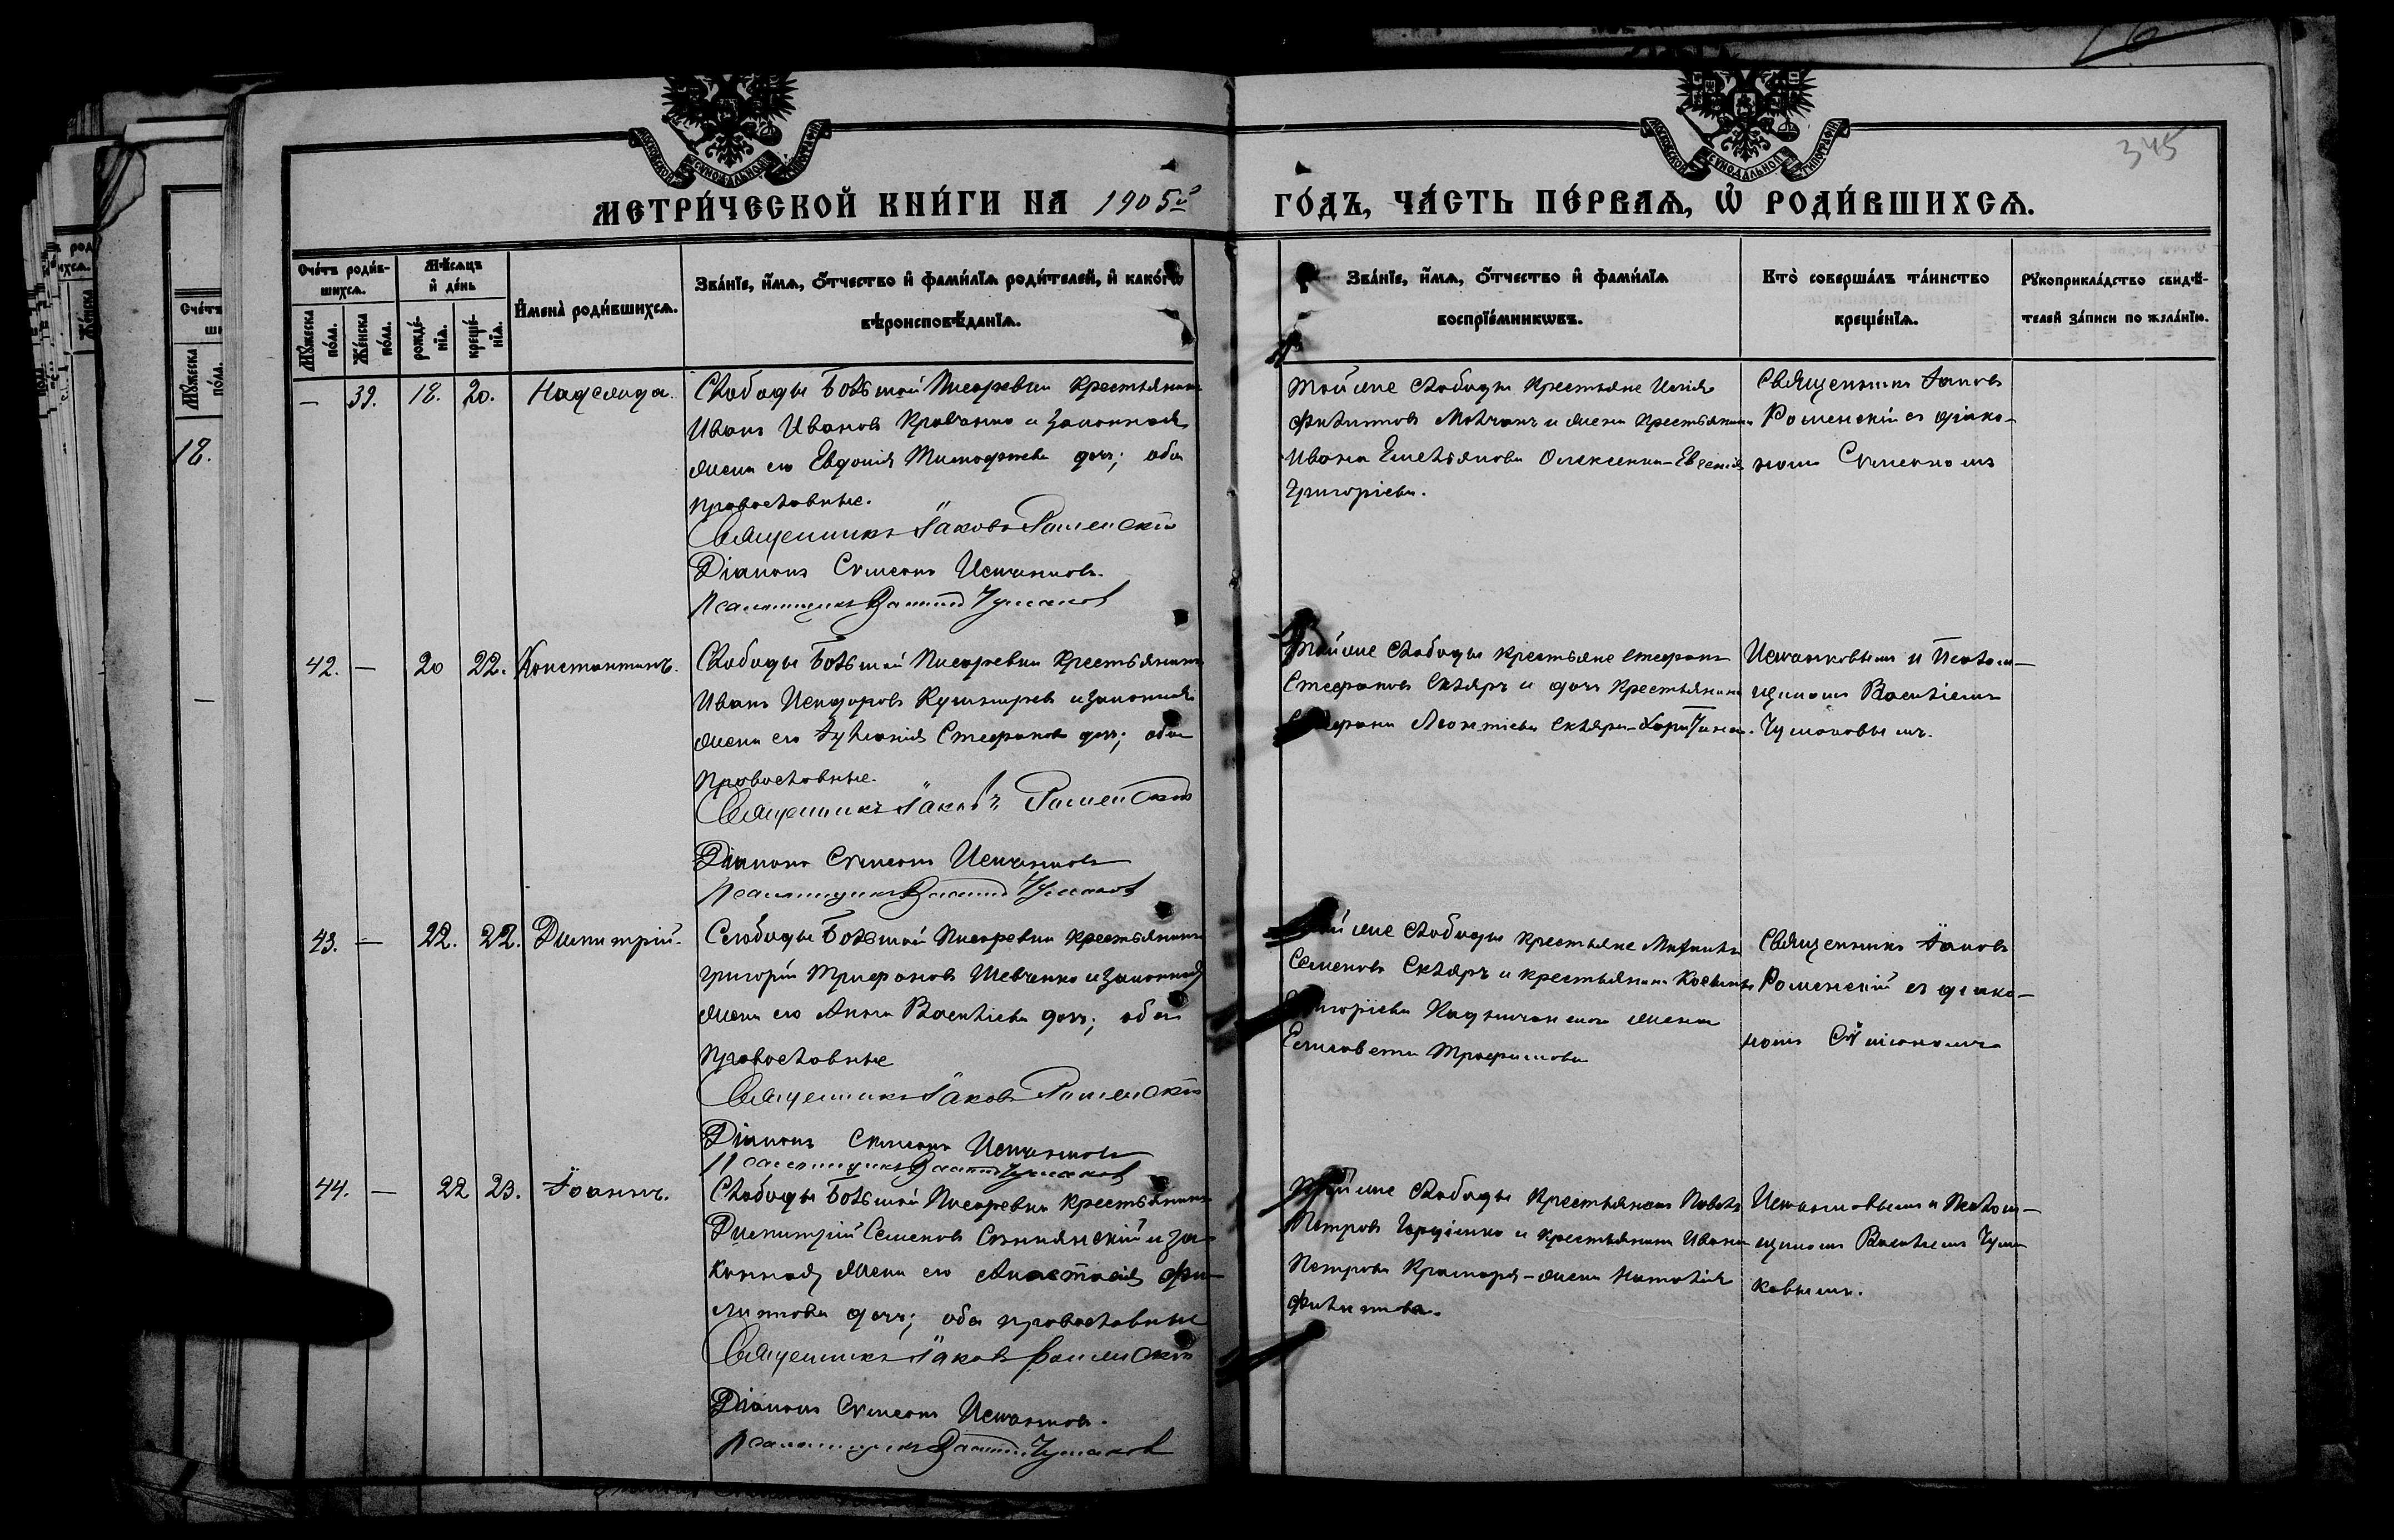 345
МОСКОВСКОЙ СѴНОДАЛЬНОЙ ТИПОГРАФІИ
МОСКОВСКОЙ СѴНОДАЛЬНОЙ ТИПОГРАФІИ
МЕТРИ́ЧЕСКОЙ КНИ́ГИ НА 1905й
ГО́ДЪ, ЧА́СТЬ ПЕ́РВАѦ, Ѡ҆ РОДИ́ВШИХСѦ.
Сче́тъ роди́в-
шихсѧ.
Мꙋ́жеска по́ла.
Же́нска по́ла.
Мѣ́сѧцъ
и҆ де́нь
рожде́-
нїѧ.
креще́-
нїѧ.
И҆мена̀ роди́вшихсѧ.
Зва́нїе, и҆́мѧ, ѻ҆́тчество и҆ фами́лїѧ роди́телей, и҆ како́гѡ
вѣроисповѣ́данїѧ.
Зва́нїе, и҆́мѧ, ѻ҆́тчество и҆ фами́лїѧ
воспрїе́мникѡвъ.
Кто̀ соверша́лъ та́инство
креще́нїѧ.
Рꙋкоприкла́дство свидѣ́-
телей за́писи по жела́нїю.
— 39. 18. 20. Надежда.
Слободы Большой Писаревки крестьянинъ
Иванъ Ивановъ Кравченко и законная
жена его Евдокія Тимофеева дочь; оба
православные.
Священникъ Іаковъ Роменскій
Діаконъ Сѵмеонъ
Псаломщикъ Василій Чумаковъ
Той же слободы крестьяне Илія
Филипповъ Молчанъ и жена крестьянина
Ивана Емельянова Олексенка Евгенія
Григоріева.
Священникъ Іаковъ
Роменскій съ діако-
номъ Сѵмеономъ
42. — 20 22. Константинъ.
Слободы Большой Писаревки крестьянинъ
Иванъ Кушнаревъ и законная
жена его Іуліанія Стефанова дочь; оба
православные.
Священникъ Іаковъ Роменскій
Діаконъ Сѵмеонъ
Псаломщикъ Василій Чумаковъ
Той же слободы крестьяне Стефанъ
Стефановъ Скляръ и дочь крестьянина
Стефана Леонтіева Скляра Харитина.
и Псалом-
щикомъ Василіемъ
Чумаковымъ.
43. — 22. 22. Димитрій.
Слободы Большой Писаревки крестьянинъ
Григорій Трифоновъ Шевченко и законная
жена его Анна Василіева дочь; оба
православные
Священникъ Іаковъ Роменскій
Діаконъ Сѵмеонъ
Псаломщикъ Василій Чумаковъ
Той же слободы крестьяне
Семеновъ Скляръ и крестьянина
Григоріева жена
Елисавета Трофимова
Священникъ Іаковъ
Роменскій съ діако-
номъ Сѵмеономъ
44. — 22 23. Іоаннъ.
Слободы Большой Писаревки крестьянинъ
Димитрій Семеновъ и за-
конная жена его Анастасія Фи-
липпова дочь; оба православные
Священникъ Іаковъ Роменскій
Діаконъ Сѵмеонъ
Псаломщикъ Василій Чумаковъ
Той же слободы крестьянинъ Павелъ
Петровъ и крестьянина Ивана
Петрова Крамаря — жена Наталія
Филиппова.
и Псалом-
щикомъ Василіемъ Чума-
ковымъ.
18.